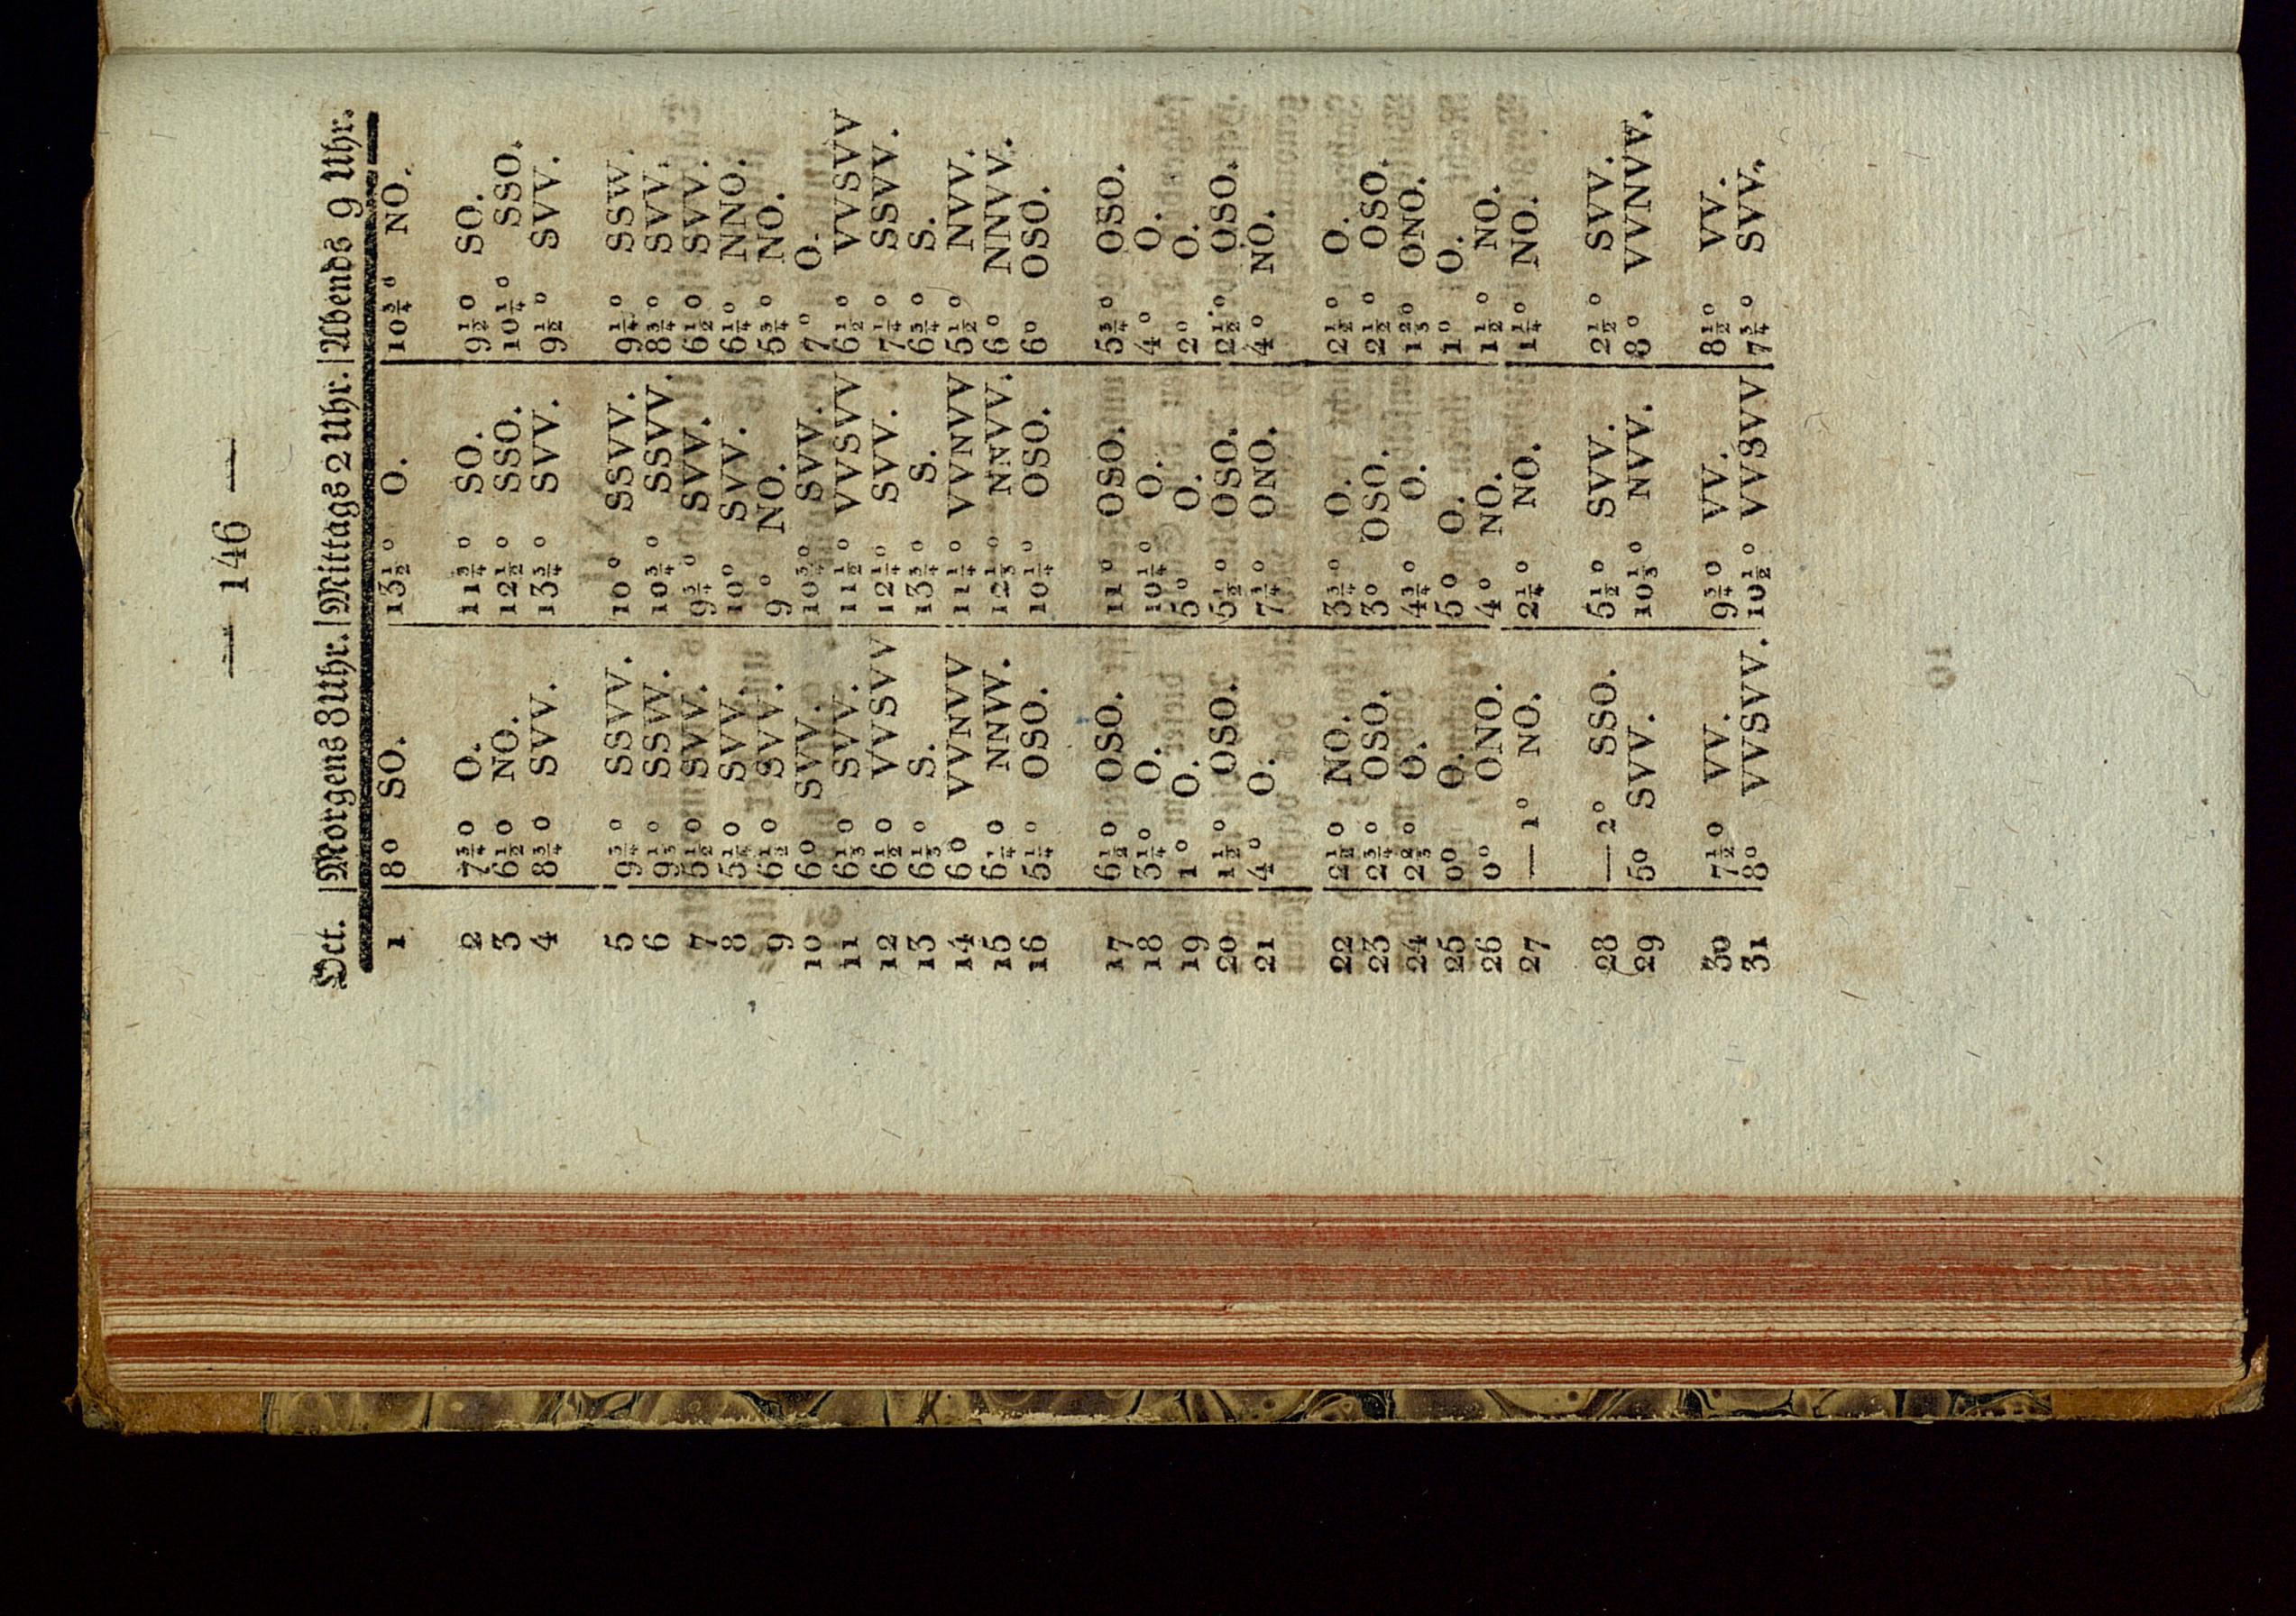 — 146 —
Oct. |Morgens 8 Uhr.|Mittags 2 Uhr.|Abends 9 Uhr.
1 8° SO. 13½° O. 10¾° NO.
2 7¾° O. 11¾° SO. 9½° SO.
3 6½° NO. 12½° SSO. 10¼° SSO.
4 8¾° SW. 13¾° SW. 9½° SW.
5 9¾° SSW. 10° SSW. 9¼° SSW.
6 9⅓° SSW. 10¾° SSW. 8¾° SW.
7 5½° SW. 9¾° SW. 6½° SW.
8 5¼° SW. 10° SW. 6¼° NNO.
9 6½° SW. 9° NO. 5¾° NO.
10 6° SW. 10¾° SW. 7° O.
11 6⅓° SW. 11½° WSW 6½° WSW
12 6½° WSW 12¼° SW. 7¼° SSW.
13 6⅓° S. 13¾° S. 6¾° S.
14 6° WNW 11¼° WNW 5½° NW.
15 6¼° NNW. 12⅓° NNW. 6° NNW.
16 5¼° OSO. 10¼° OSO. 6° OSO.
17 6½° OSO. 11° OSO. 5¾° OSO.
18 3¼° O. 10¼° O. 4° O.
19 1° O. 5° O. 2° O.
20 1½° OSO. 5½° OSO. 2½° OSO.
21 4° O. 7¾° ONO. 4° NO.
22 2½° NO. 3¾° O. 2½° O.
23 2¾° OSO. 3° OSO. 2½° OSO.
24 2⅔° O. 4¾° O. 1⅔° ONO.
25 0° O. 5° O. 1° O.
26 0° ONO. 4° NO. 1½° NO.
27 — 1° NO. 2¼° NO. 1¼° NO.
28 — 2° SSO. 5½° SW. 2½° SW.
29 5° SW. 10⅓° NW. 8° WNW.
30 7½° W. 9¾° W. 8½° W.
31 8° WSW. 10½° WSW 7¾° SW.